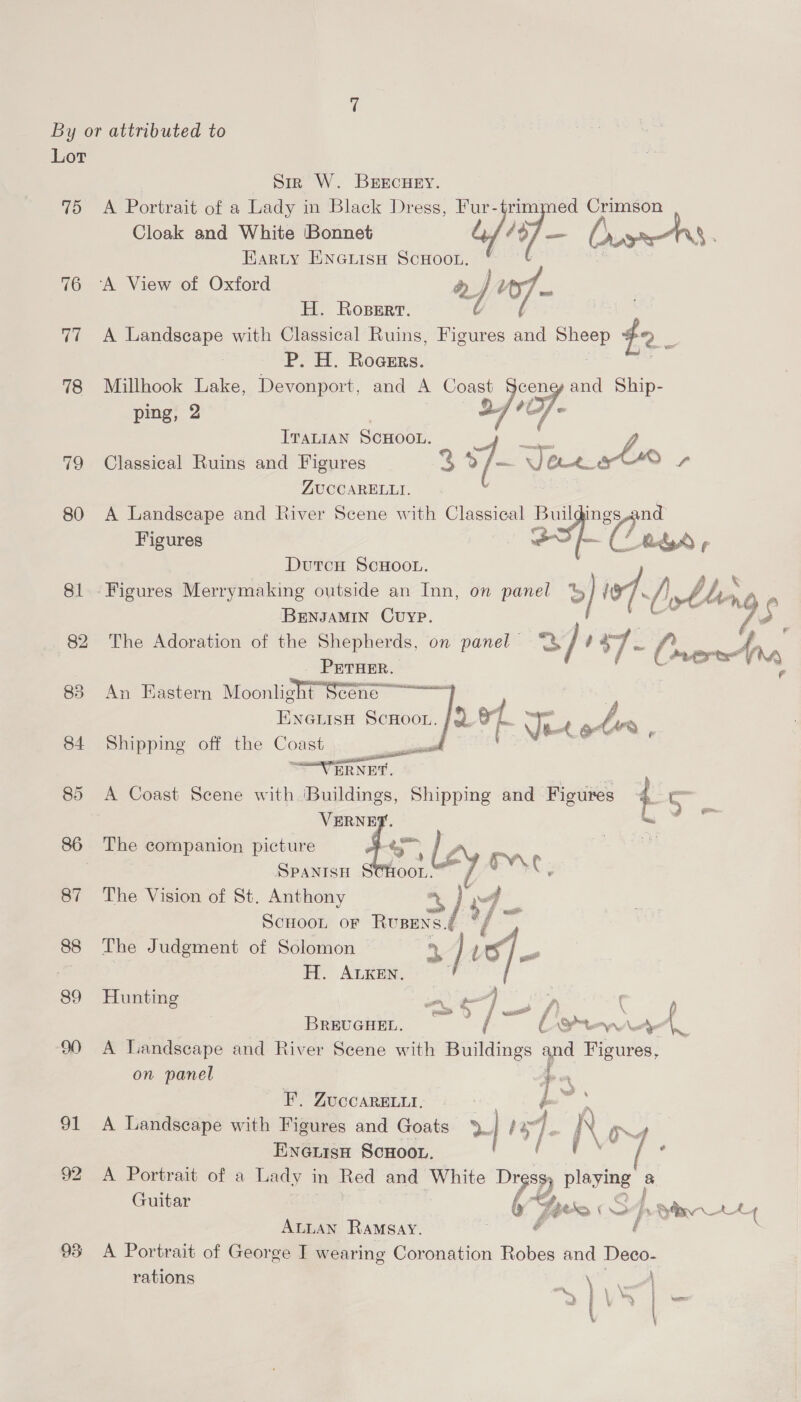 7
By or attributed to
Lot
Sir W. Beechey.
75 A Portrait of a Lady in Black Dress, Fur-trimmed Crimson
Cloak and White Bonnet 4/15/-
Early English School.
76 A View of Oxford 2/10/-
H. Robert.
77 A Landscape with Classical Ruins, Figures and Sheep £2 -
P. H. Rogers.
78 Millhook Lake, Devonport, and A Coast Scene, and Ship-
ping, 2 2/10/-
Italian School.
79 Classical Ruins and Figures 35/-
Zuccarelli.
80 A Landscape and River Scene with Classical Buildings and
Figures 25/-
Dutch School.
81 Figures Merrymaking outside an Inn, on panel 3/10/-
Benjamin Cuyp.
82 The Adoration of the Shepherds, on panel 2/15/-
Pether.
83 An Eastern Moonlight Scene
English School.
84 Shipping off the Coast
Vernet.
85 A Coast Scene with Buildings, Shipping and Figures £5 -
Vernet.
86 The companion picture £5
Spanish School.
87 The Vision of St. Anthony
School of Rubens.
88 The Judgment of Solomon 2/10/-
H. Alken.
89 Hunting 25/-
Breughel.
90 A Landscape and River Scene with Buildings and Figures,
on panel
F. Zuccarelli.
91 A Landscape with Figures and Goats 2/15/-
English School.
92 A Portrait of a Lady in Red and White Dress, playing a
Guitar
Allan Ramsay.
93 A Portrait of George I wearing Coronation Robes and Deco-
rations